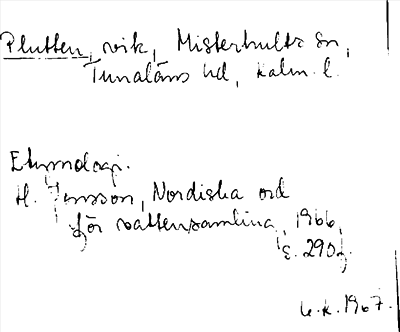 Plutten, vik, Misterhults sn,
Tunaläns hd, Kalm. l.
Etymologi.
H. Jonsson, Nordiska ord
för vattensamling, 1966,
s. 290f.
1967.